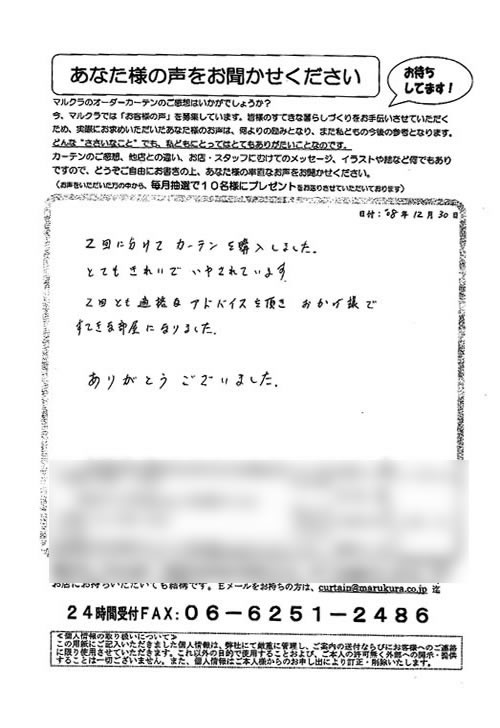 あなた様の声をお聞かせください
お待ち
してます!
マルクラのオーダーカーテンのご感想はいかがでしょうか?
今、マルクラでは「お客様の声」を募集しています。皆様のすてきな暮らしづくりをお手伝いさせていただく
ため、実際にお求めいただいたあなた様のお声は、何よりの励みとなり、また私どもの今後の参考となります。
どんな“ささいなこと”でも、私どもにとってはとてもありがたいことなのです。
カーテンのご感想、他店との違い、お店・スタッフにむけてのメッセージ、イラストや詩など何でもあり
ですので、どうぞご自由にお書きの上、あなた様の率直なお声をお聞かせください。
(お声をいただいた方の中から、毎月抽選で10名様にプレゼントをお送りさせていただいております)
日付:'08年12月30日
2回に分けて カーテンを購入しました。
とてもきれいで いやされています。
2回とも適接なアドバイスを頂き おかげ様で
すてきな部屋になりました。
ありがとうございました。
お店にお持ちいただいても結構です。Eメールをお持ちの方は、curtain@marukura.co.jp 迄
24時間受付FAX:06-6251-2486
<個人情報の取り扱いについて>
この用紙にご記入いただきました個人情報は、弊社にて厳重に管理し、ご案内の送付ならびにお客様へのご連絡
に限り使用させていただきます。これ以外の目的で使用することおよび、ご本人の許可無く外部への開示・提供
することは一切ございません。また、個人情報はご本人様からのお申し出により訂正・削除いたします。